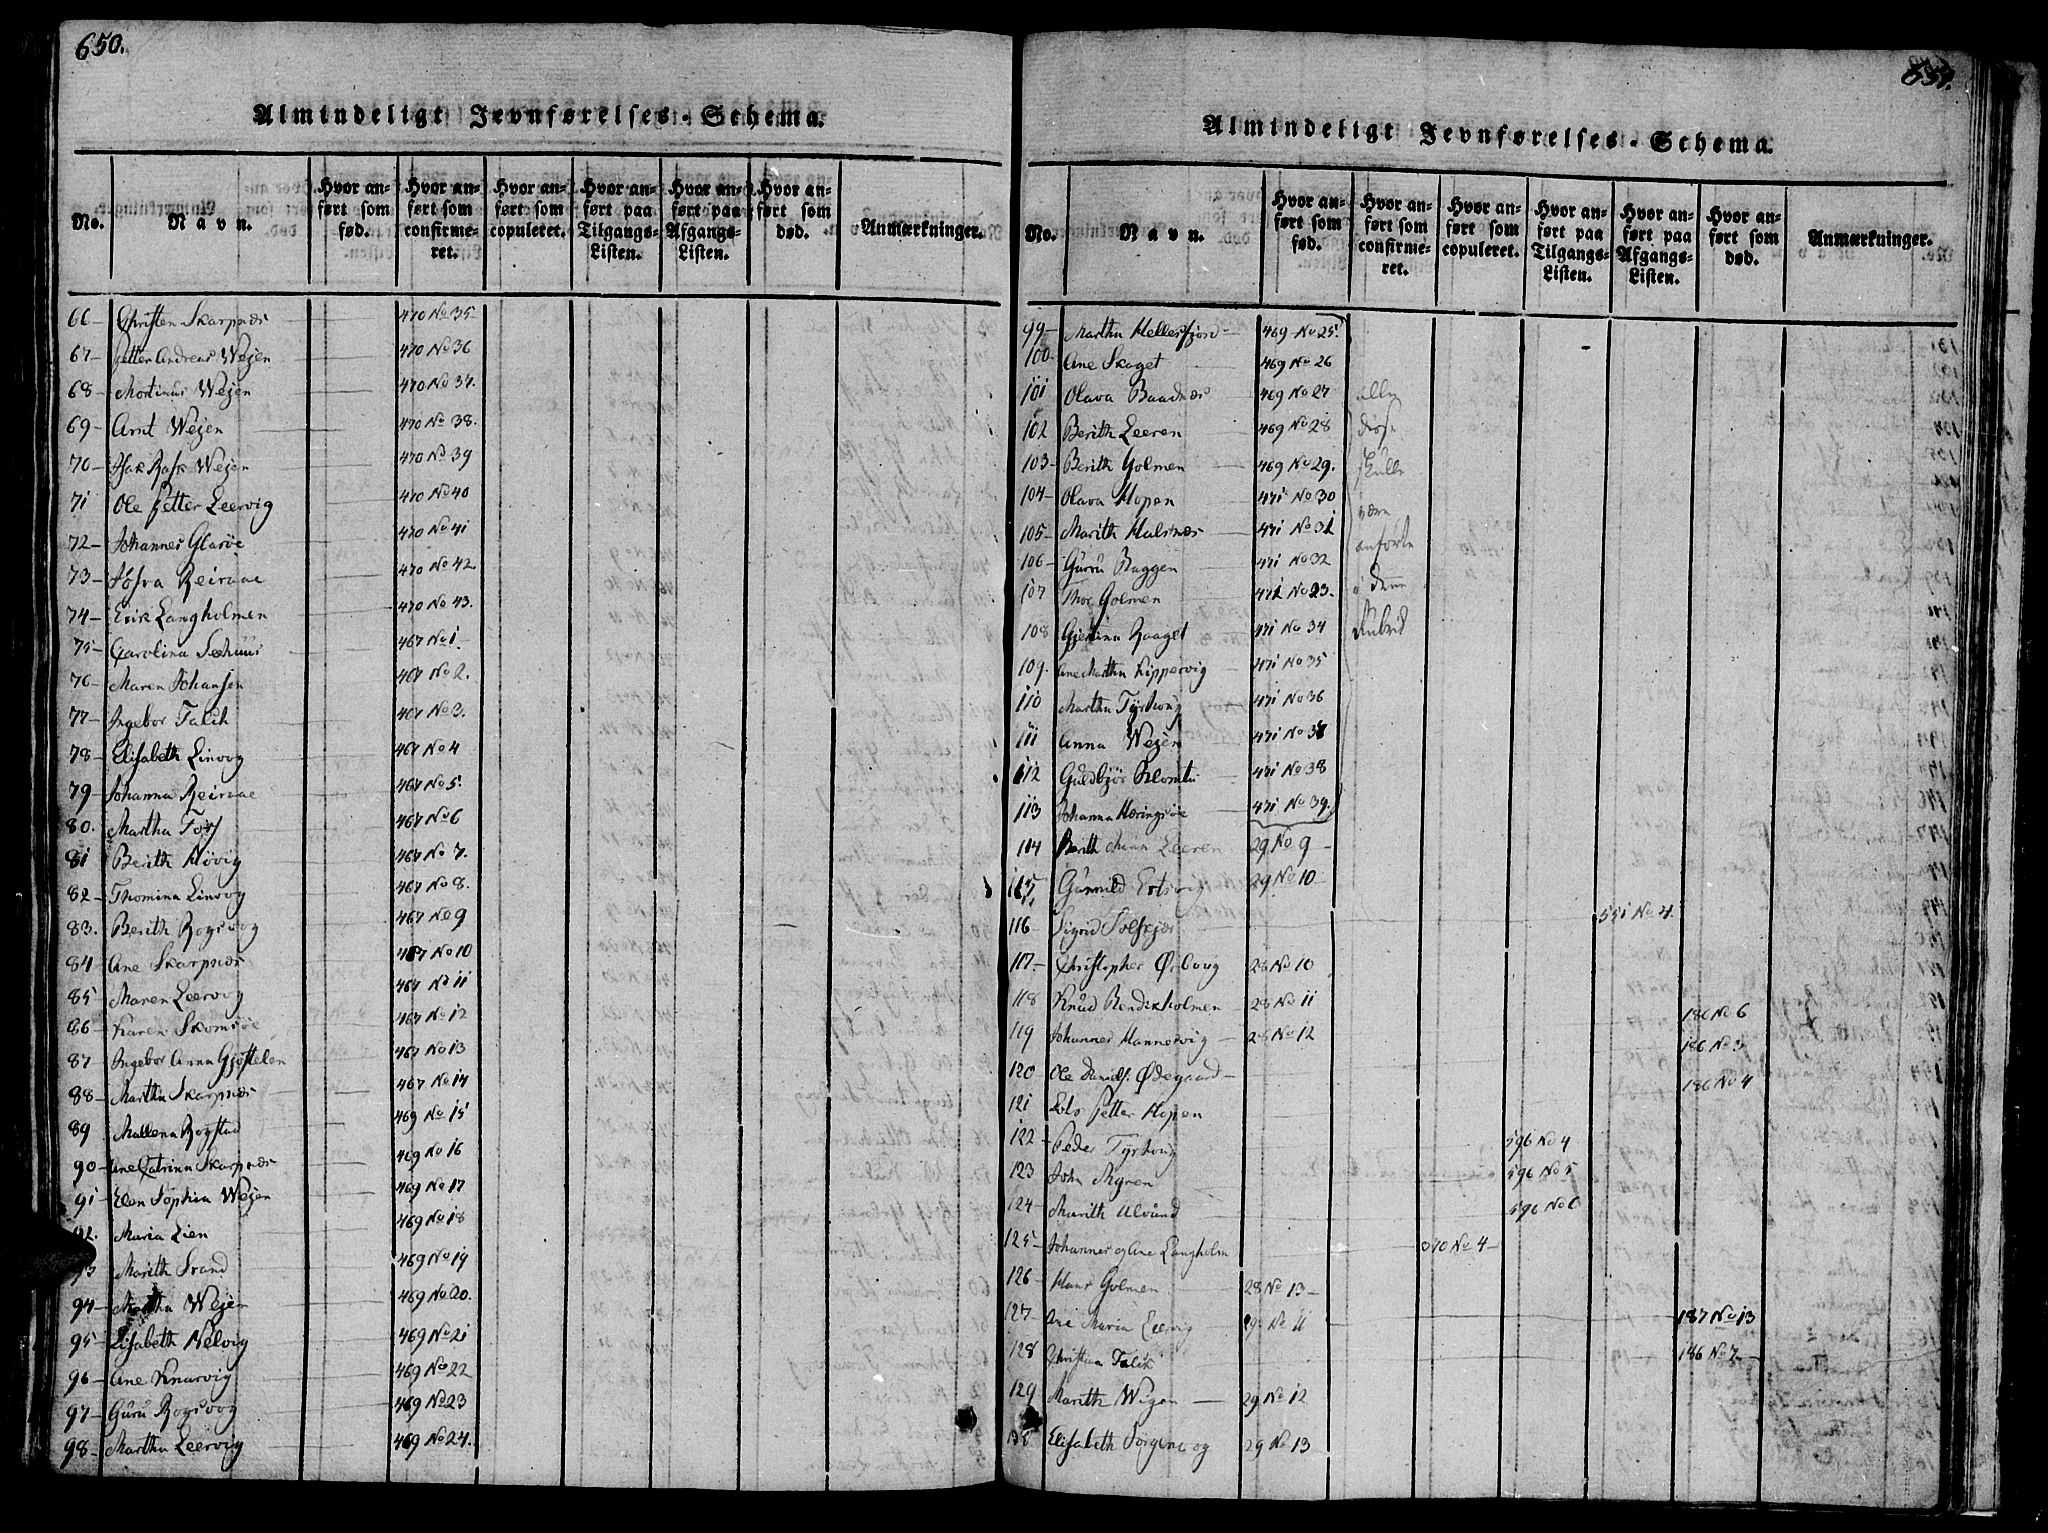 650.
Almindeligt Jevnførelses-Schema.
No. Navn. Hvor anført som fød. Hvor anført som confirmeret. Hvor anført som copuleret. Hvor anført paa Tilgangs-Listen. Hvor anført paa Afgangs-Listen. Hvor anført som død. Anmærkninger.
66 Christen Skarpnæs 470 No 35
67 Petter Andreas Wejen 470 No 36
68 Mortinus Wejen 470 No 37.
69 Arnt Wejen 470 No 38.
70 Isak Rask Wejen 470 No 39
71 Ole Petter Leervig 470 No 40
72 Johannes Glasøe 470 No 41
73 Reirvae 470 No 42.
74 Erik Langholmen 470 No 43.
75 Carolina Seehuus 467 No 1.
76 Maren Johansen 467 No 2.
77 Ingebor Talch 467 No 3.
78 Elisabeth Linvog 467 No 4
79 Johanna Reirvae 467 No 5.
80. Martha 467 No 6
81 Berith Høvig 467 No 7.
82 Thomina Linvog 467 No 8.
83. Berith Rogsvog 467 No 9
84 Ane Skarpnæs 467 No 10
85 Maren Leervog 467 No 11
86 Karen Skomsøe 467 No 12
87 Ingebor Anna Gjøstelen 467 No 13
88 Martha Skarpnæs 467 No 14
89 Mallena Rogstad 469 No 15
90 Ane Catrina Skarpnæs 469 No 16
91 Elen Sophia Wejen 469 No 17
92. Maria Lien 469 No 18
93 Marith Strand 469 No 19
94 Martha Wejen 469 No 20.
95 Lisabeth Nelvig 469 No 21
96 Ane Knarvig 469 No 22
97 Guru Rogsvog 469 No 23
98 Martha Leervig 469 No 24.
651.
Almindeligt Jevnførelses-Schema.
No. Navn. Hvor anført som fød. Hvor anført som confirmeret. Hvor anført som copuleret. Hvor anført paa Tilgangs-Listen. Hvor anført paa Afgangs-Listen. Hvor anført som død. Anmærkninger.
99 Martha Hellesfjord 469 No 25.
100 Ane Skaget 469 No 26
101 Olava Baadnæs 469 No 27 alle
102 Berith Leeren 469 No 28 disse
103 Berith Golmen 469 No 29. skulle
104 Olava Hopen 471 No 30 være
105 Marith Halsnæs 471 No 31 anførte
106 Guru Baggen 471 No 32 i denne
107 Thor Golmen 471 No 23.
108 Gjertina Raaget 471 No 34 Rubrik
109. Ane Martha Kippervig 471 No 35
110 Martha Tyrhoug 471 No 36
111 Anna Wejen 471 No 37
112 Guldbjør 471 No 38
113 Johanna Heringsøe 471 No 39.
114 Berith Maria Leeren 29 No 9
115 Gunnild 29 No 10
116 Sigrid Solskjær 551 No 4.
117. Christopher Ørboug 28 No 10
118 Knud Bendixholmen 28 No 11 186 No 6
119 Johannes Hannesvig 28 No 12 186 No 3
120 Ole Danielf. Ødegaard 186 No 4
121 Petter Hopen
122 Peder Tyrhoug 596 No 4
123 John Myren 596 No 5
124 Marith Alvund 596 No 6
125 Johannes og Ane Langholm No 4
126 Hans Golmen 28 No 13
127 Ane Maria Leervig 29 No 11 187 No 13
128 Christian Talch 186 No 7
129 Marith Wigen 29 No 12
130 Elisabeth 29 No 13